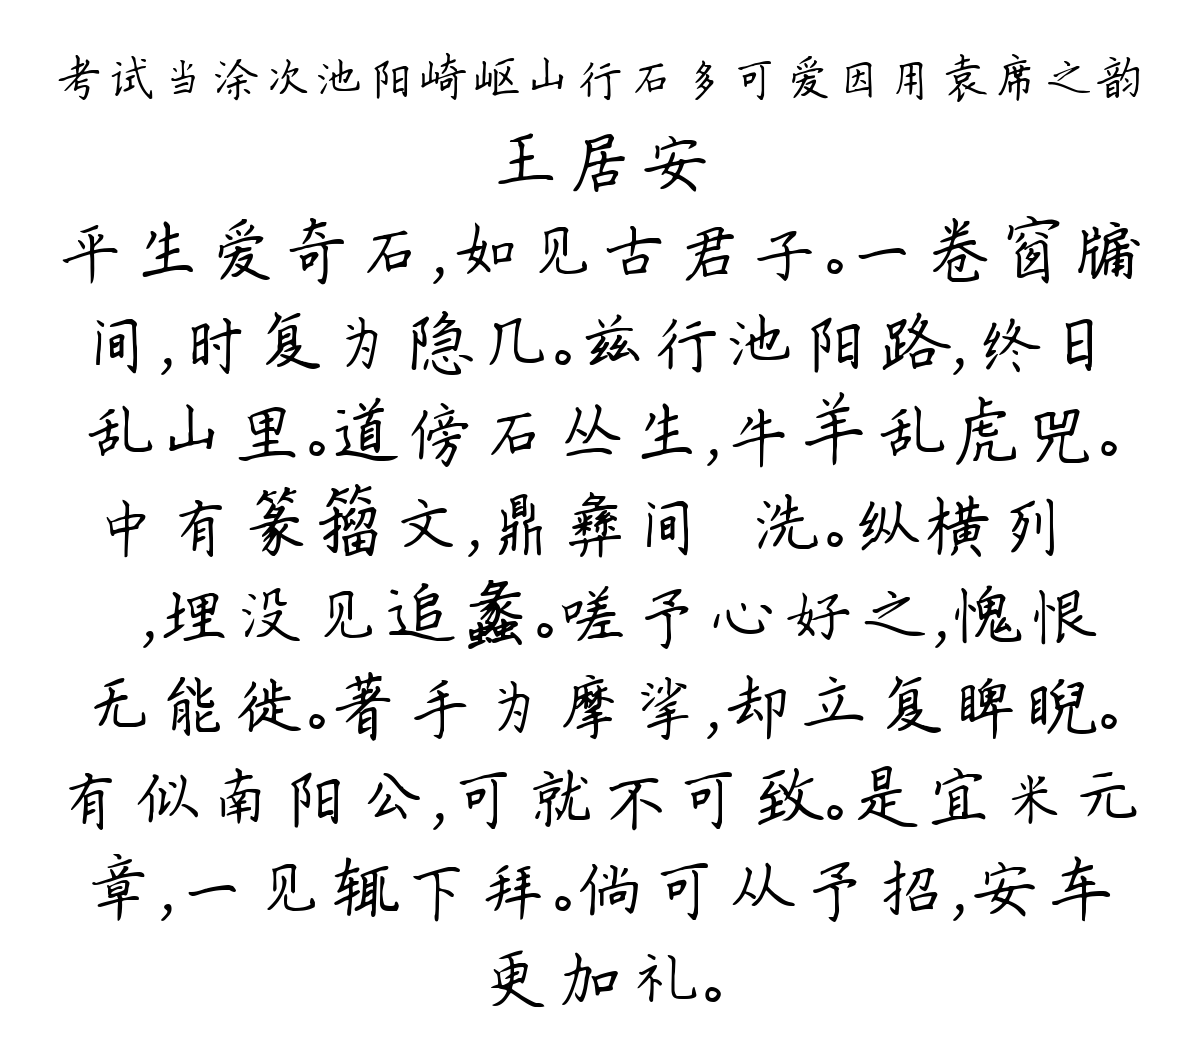 考试当涂次池阳崎岖山行石多可爱因用袁席之韵
王居安
平生爱奇石,如见古君子。一卷窗牗
间,时复为隐几。兹行池阳路,终日
乱山里。道傍石丛生,牛羊乱虎兕。
中有篆籀文,鼎彝间 洗。纵横列
,埋没见追蠡。嗟予心好之,愧恨
无能徙。著手为摩挲,却立复睥睨。
有似南阳公,可就不可致。是宜米元
章,一见辄下拜。倘可从予招,安车
更加礼。